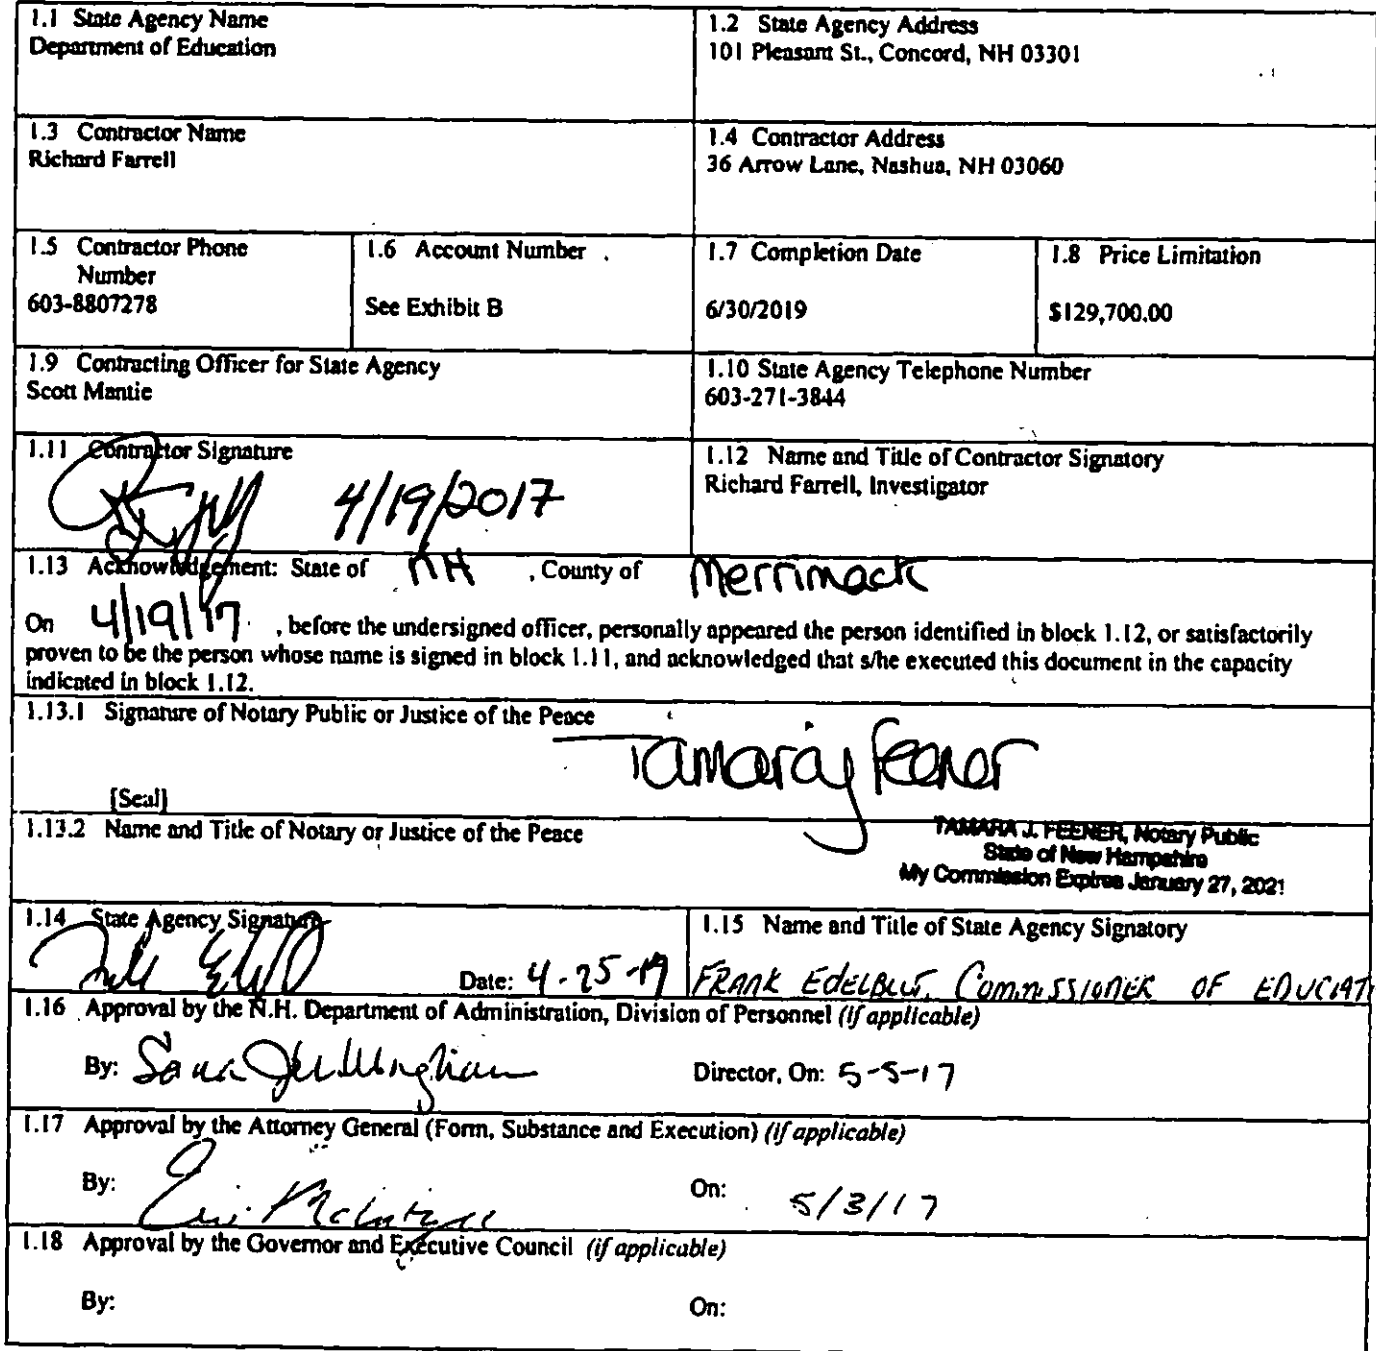 1.1 State Agency Name
Department of Education
1.2 State Agency Address
101 Pleasant St., Concord, NH 03301
1.3 Contractor Name
Richard Farrell
1.4 Contractor Address
36 Arrow Lane, Nashua, NH 03060
1.5 Contractor Phone
Number
603-8807278
1.6 Account Number
See Exhibit B
1.7 Completion Date
6/30/2019
1.8 Price Limitation
$129,700.00
1.9 Contracting Officer for State Agency
Scott Mantie
1.10 State Agency Telephone Number
603-271-3844
1.11 Contractor Signature
4/19/2017
1.12 Name and Title of Contractor Signatory
Richard Farrell, Investigator
1.13 Acknowledgement: State of NH , County of Merrimack
On 4/19/17 , before the undersigned officer, personally appeared the person identified in block 1.12, or satisfactorily
proven to be the person whose name is signed in block 1.11, and acknowledged that s/he executed this document in the capacity
indicated in block 1.12.
1.13.1 Signature of Notary Public or Justice of the Peace
Tamara J Feener
[Seal]
1.13.2 Name and Title of Notary or Justice of the Peace
TAMARA J. FEENER, Notary Public
State of New Hampshire
My Commission Expires January 27, 2021
1.14 State Agency Signature
Date: 4-25-17
1.15 Name and Title of State Agency Signatory
FRANK EDELBLUT, COMMISSIONER OF EDUCAT
1.16 Approval by the N.H. Department of Administration, Division of Personnel (if applicable)
By:
Director, On: 5-5-17
1.17 Approval by the Attorney General (Form, Substance and Execution) (if applicable)
By:
On: 5/3/17
1.18 Approval by the Governor and Executive Council (if applicable)
By:
On: